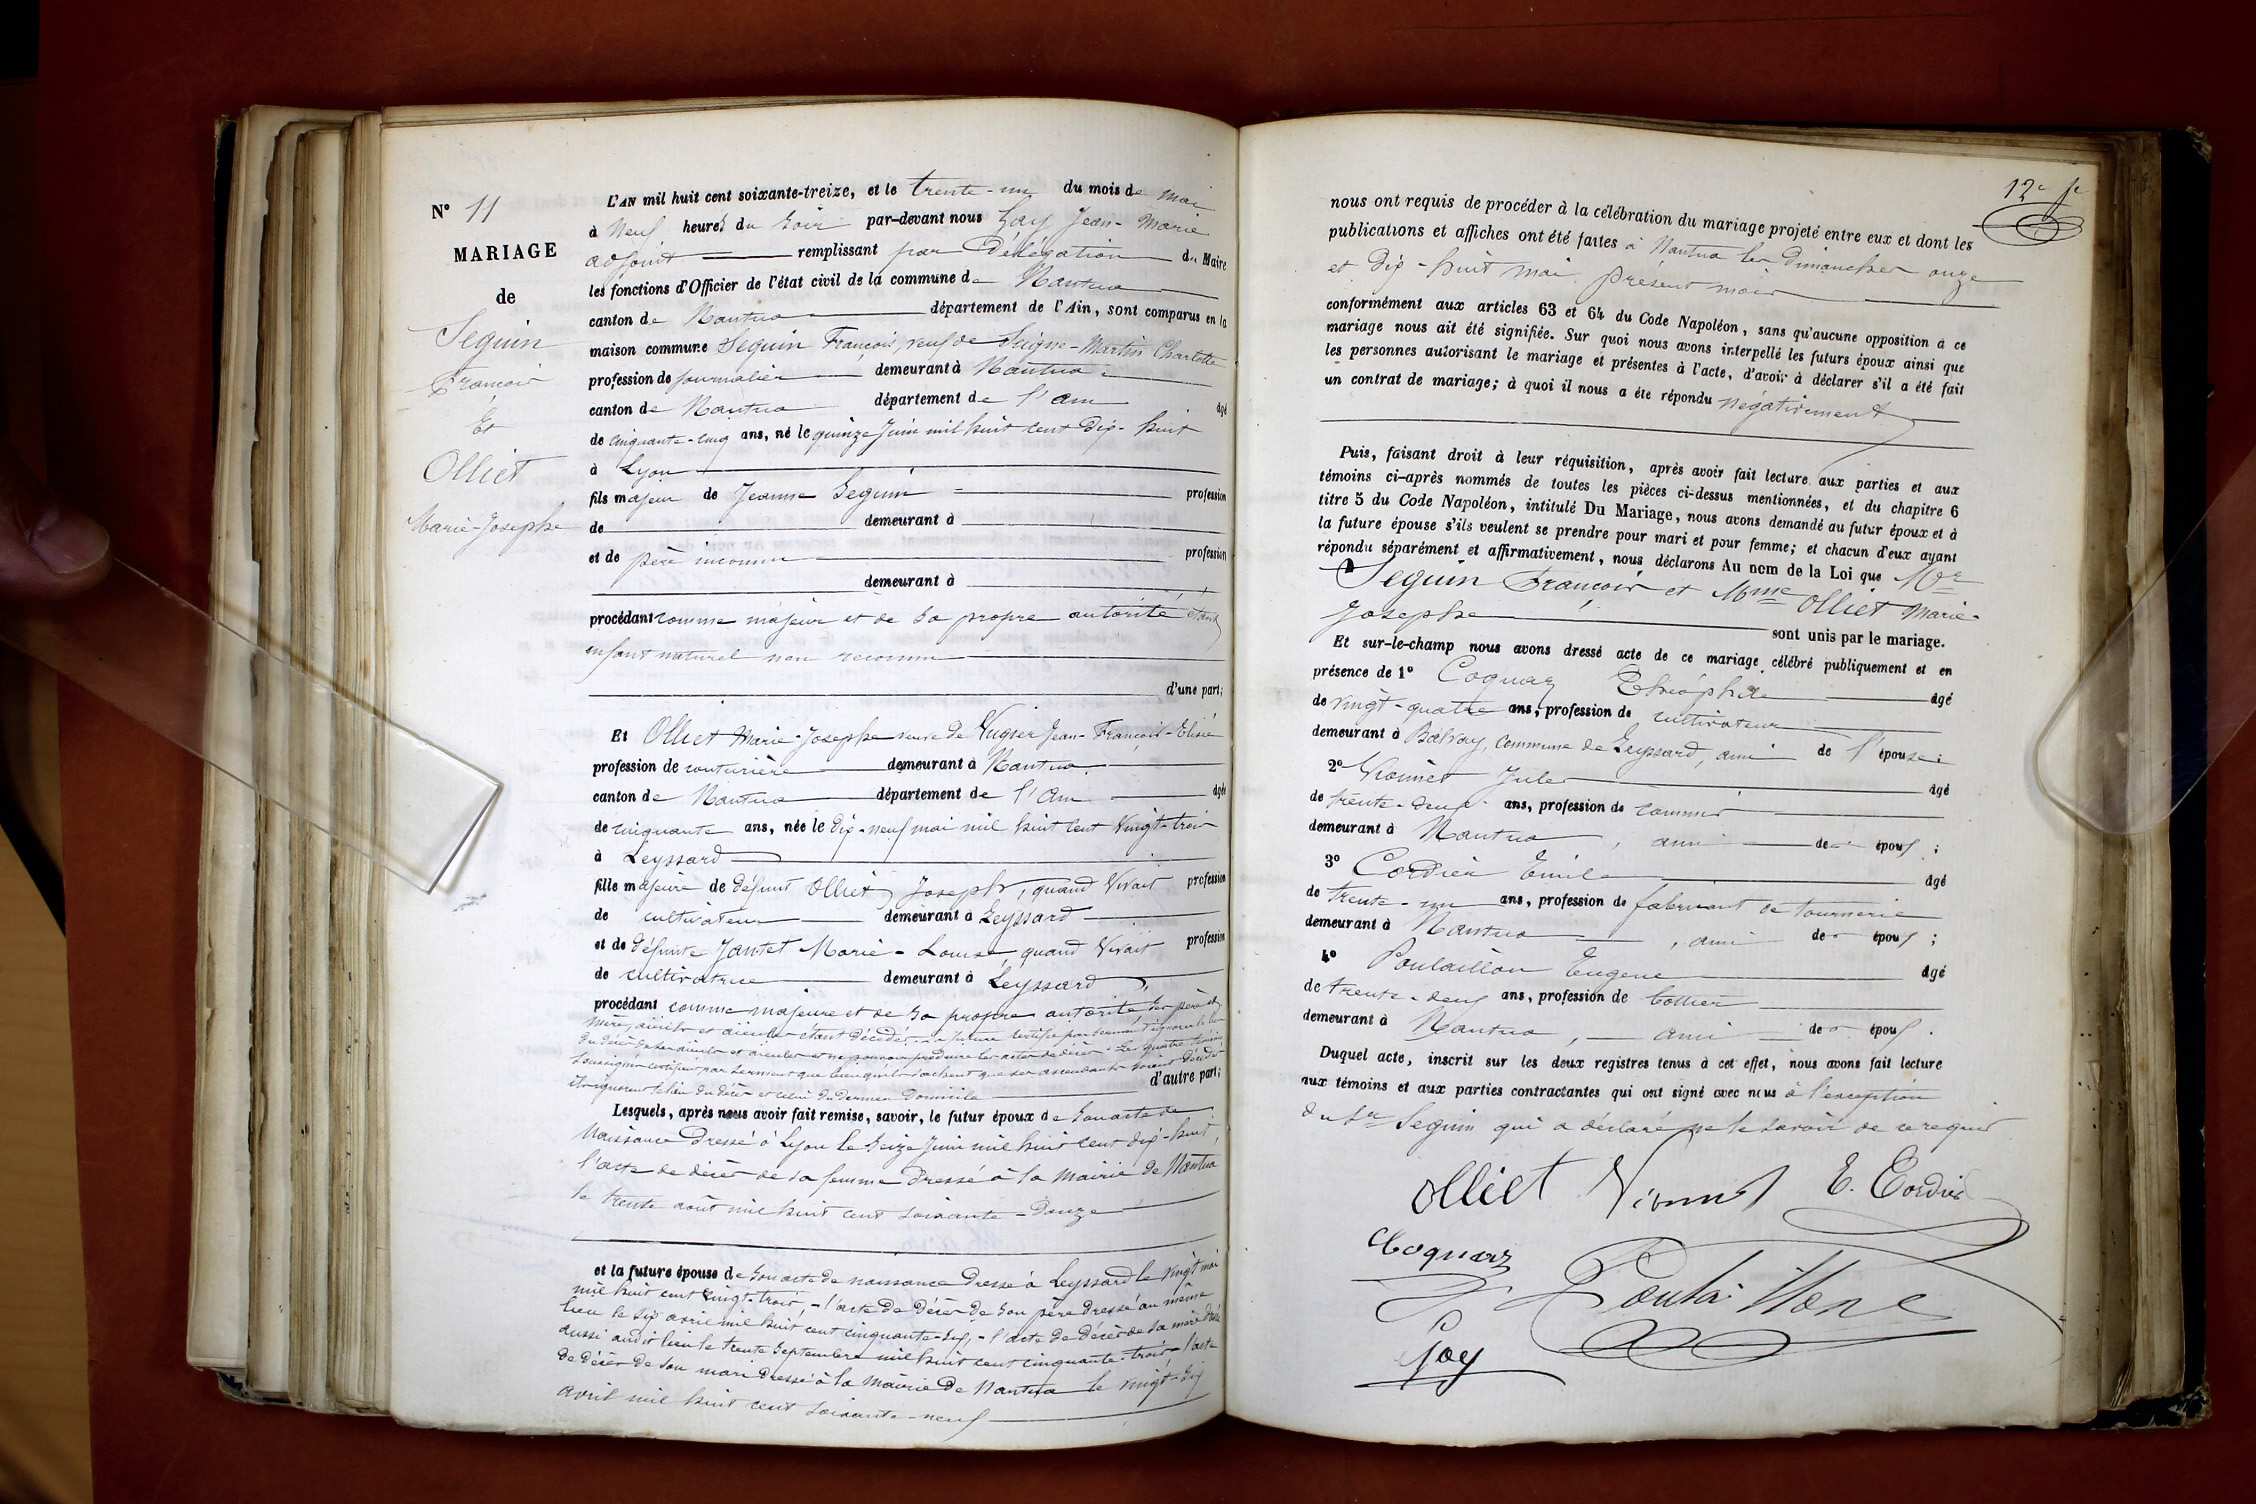 N° 11
MARIAGE
de
Seguin
François
Et
Olliet
Marie-Josephe
L'AN mil huit cent soixante-treize, et le trente-un du mois de mai
à Neuf heures du Soir par-devant nous Goy Jean-Marie
adjoint remplissant par Délégation du Maire
les fonctions d'Officier de l'état civil de la commune de Nantua
canton de Nantua département de l'Ain, sont comparus en la
maison commune Seguin François, veuf de Martin Charlotte
profession de journalier demeurant à Nantua
canton de Nantua département de l'Ain âgé
de cinquante-cinq ans, né le quinze Juin mil huit cent dix-huit
à Lyon
fils majeur de Jeanne Seguin profession
de demeurant à
et de père inconnu profession
demeurant à
procédant comme majeur et de sa propre autorité étant
enfant naturel non reconnu
d'une part;
Et Olliet Marie-Josephe veuve de Jean-François-Elisée
profession de couturière demeurant à Nantua
canton de Nantua département de l'Ain âgée
de cinquante ans, née le dix-neuf mai mil huit cent vingt-trois
à Leyssard
fille majeure de défunt Olliet Joseph, quand vivait profession
de cultivateur demeurant à Leyssard
et de défunte Jantet Marie-Louise, quand vivait profession
de cultivatrice demeurant à Leyssard,
procédant comme majeure et de sa propre autorité ses père et
mère, aieuls et aieules étant décédés, la future certifie par serment ignorer le lieu
du décès de ses aieuls et aieules et ne pouvoir produire les actes de décès. Les quatre témoins
soussignés certifient par serment que bien qu'ils sachent que ses ascendants soient décédés
ils ignorent le lieu du décès et celui du dernier domicile
d'autre part;
Lesquels, après nous avoir fait remise, savoir, le futur époux de son acte de
Naissance Dressé à Lyon le seize Juin mil huit cent dix-huit,
l'acte de décès de sa femme Dressé à la Mairie de Nantua
le trente août mil huit cent soixante-douze
et la future épouse de son acte de naissance Dressé à Leyssard le vingt mai
mil huit cent vingt-trois, - l'acte de Décès de son père Dressé au même
lieu le six avril mil huit cent cinquante-six, - l'acte de Décès de sa mère dressé
aussi audit lieu le trente Septembre mil huit cent cinquante-trois - l'acte
de décès de son mari dressé à la Mairie de Nantua le vingt-six
avril mil huit cent soixante-neuf
12e f
nous ont requis de procéder à la célébration du mariage projeté entre eux et dont les
publications et affiches ont été faites à Nantua les Dimanches onze
et Dix-huit mai présent mois
conformément aux articles 63 et 64 du Code Napoléon, sans qu'aucune opposition à ce
mariage nous ait été signifiée. Sur quoi nous avons interpellé les futurs époux ainsi que
les personnes autorisant le mariage et présentes à l'acte, d'avoir à déclarer s'il a été fait
un contrat de mariage; à quoi il nous a été répondu négativement
Puis, faisant droit à leur réquisition, après avoir fait lecture aux parties et aux
témoins ci-après nommés de toutes les pièces ci-dessus mentionnées, et du chapitre 6
titre 5 du Code Napoléon, intitulé Du Mariage, nous avons demandé au futur époux et à
la future épouse s'ils veulent se prendre pour mari et pour femme; et chacun d'eux ayant
répondu séparément et affirmativement, nous déclarons Au nom de la Loi que Mr
Seguin François et Mme Olliet Marie-
Josephe sont unis par le mariage.
Et sur-le-champ nous avons dressé acte de ce mariage célébré publiquement et en
présence de 1° Coquaz âgé
de vingt-quatre ans, profession de cultivateur
demeurant à Balvay, commune de Leyssard, ami de l'épouse;
2° Vionnet Jules âgé
de trente-deux ans, profession de commis
demeurant à Nantua, ami de époux;
3° Cordier Emile âgé
de trente-un ans, profession de fabricant de tournerie
demeurant à Nantua, ami de époux;
4° Poulaillon Eugene âgé
de trente-deux ans, profession de
demeurant à Nantua, ami de époux.
Duquel acte, inscrit sur les deux registres tenus à cet effet, nous avons fait lecture
aux témoins et aux parties contractantes qui ont signé avec nous à l'exception
du Sr Seguin qui a déclaré ne le savoir de ce requis
Olliet Vionnet E. Cordier
Coquaz
Poulaillon E
Goy